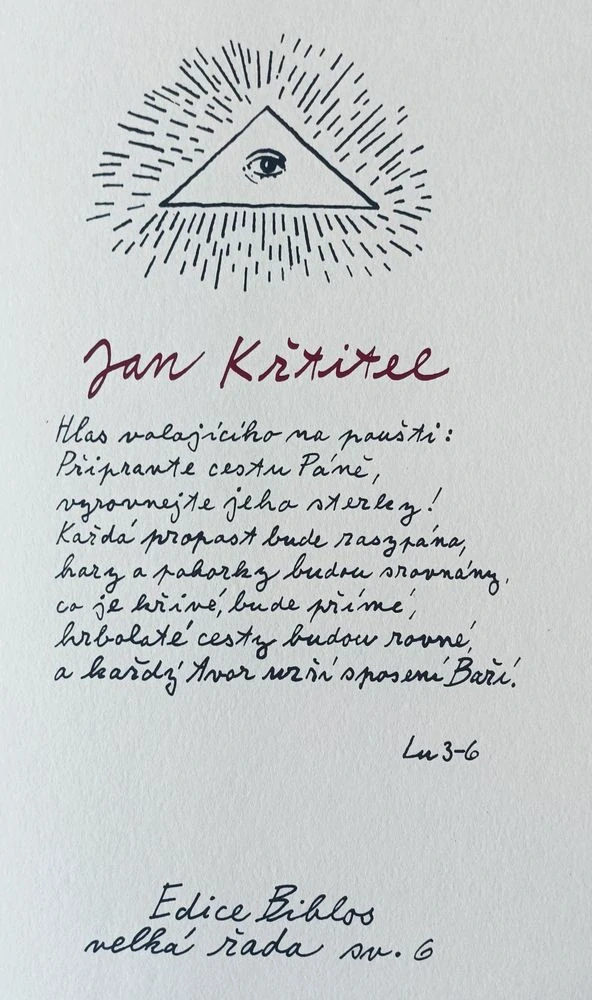 Jan Křtitel
Hlas volajícího na poušti:
Připravte cestu Páně,
vyrovnejte jeho stezky!
Každá propast bude zasypána,
hory a pahorky budou srovnány,
co je křivé, bude přímé,
hrbolaté cesty budou rovné,
a každý tvor uzří spasení Boží!
Lu 3-6
Edice Biblos
velká řada sv. 6